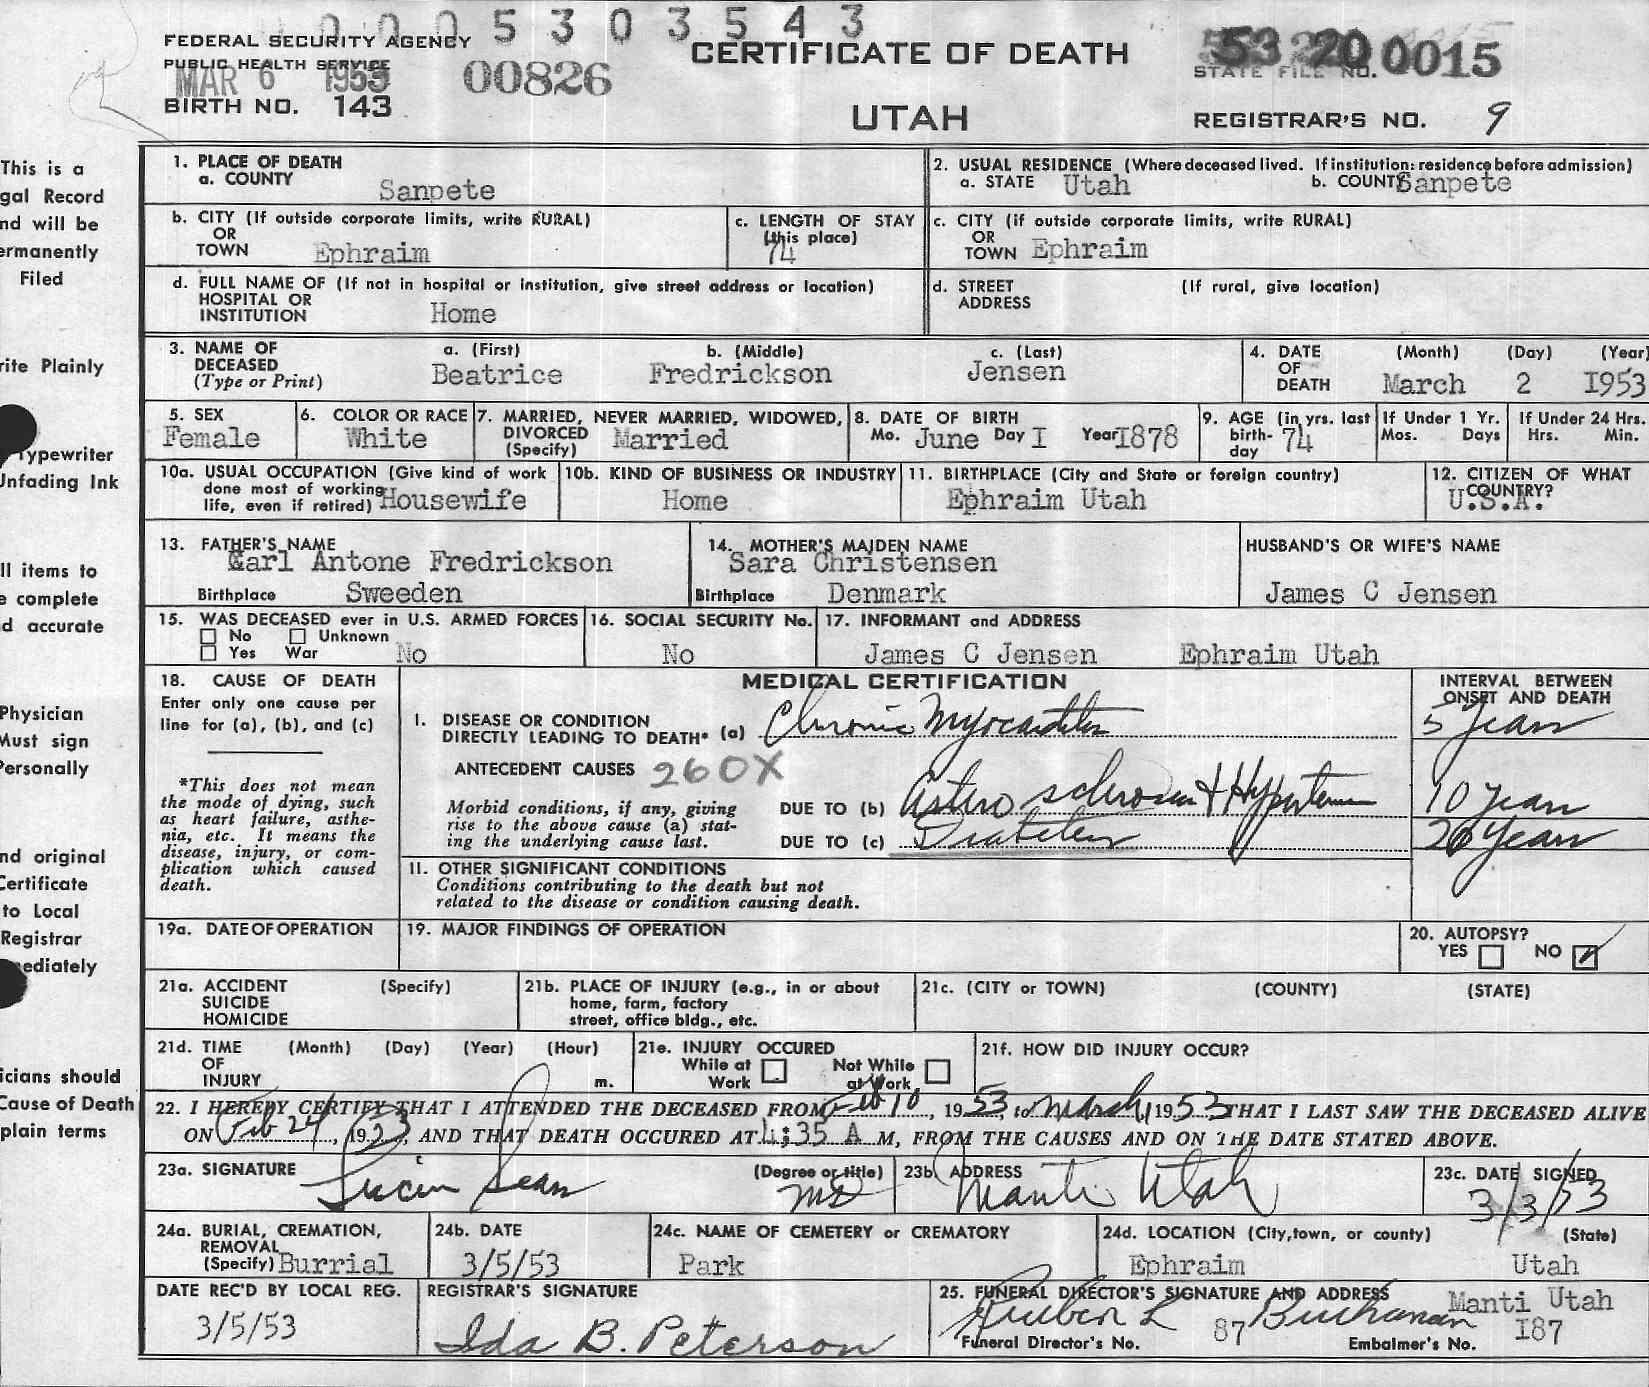 0005303543
FEDERAL SECURITY AGENCY
PUBLIC HEALTH SERVICE
MAR 6 1953
00826
BIRTH NO. 143
CERTIFICATE OF DEATH
UTAH
53 20 0015
STATE FILE NO.
REGISTRAR'S NO. 9
This is a
gal Record
nd will be
ermanently
Filed
rite Plainly
Typewriter
Unfading Ink
ll items to
e complete
d accurate
Physician
Must sign
Personally
nd original
Certificate
to Local
Registrar
mediately
icians should
Cause of Death
plain terms
1. PLACE OF DEATH
a. COUNTY Sanpete
2. USUAL RESIDENCE (Where deceased lived. If institution: residence before admission)
a. STATE Utah b. COUNTY Sanpete
b. CITY (If outside corporate limits, write RURAL)
OR
TOWN Ephraim
c. LENGTH OF STAY
(this place)
74
c. CITY (if outside corporate limits, write RURAL)
OR
TOWN Ephraim
d. FULL NAME OF (If not in hospital or institution, give street address or location)
HOSPITAL OR
INSTITUTION Home
d. STREET (If rural, give location)
ADDRESS
3. NAME OF DECEASED
(Type or Print)
a. (First) b. (Middle) c. (Last)
Beatrice Fredrickson Jensen
4. DATE OF DEATH (Month) (Day) (Year)
March 2 I953
5. SEX
Female
6. COLOR OR RACE
White
7. MARRIED, NEVER MARRIED, WIDOWED,
DIVORCED
(Specify) Married
8. DATE OF BIRTH
Mo. June Day I Year I878
9. AGE (in yrs. last
birth-
day 74
If Under 1 Yr.
Mos. Days
If Under 24 Hrs.
Hrs. Min.
10a. USUAL OCCUPATION (Give kind of work
done most of working
life, even if retired) Housewife
10b. KIND OF BUSINESS OR INDUSTRY
Home
11. BIRTHPLACE (City and State or foreign country)
Ephraim Utah
12. CITIZEN OF WHAT
COUNTRY?
U.S.A.
13. FATHER'S NAME
Carl Antone Fredrickson
Birthplace Sweeden
14. MOTHER'S MAIDEN NAME
Sara Christensen
Birthplace Denmark
HUSBAND'S OR WIFE'S NAME
James C Jensen
15. WAS DECEASED ever in U.S. ARMED FORCES
No Unknown
Yes War No
16. SOCIAL SECURITY No.
No
17. INFORMANT and ADDRESS
James C Jensen Ephraim Utah
18. CAUSE OF DEATH
Enter only one cause per
line for (a), (b), and (c)
*This does not mean
the mode of dying, such
as heart failure, asthe-
nia, etc. It means the
disease, injury, or com-
plication which caused
death.
MEDICAL CERTIFICATION
INTERVAL BETWEEN
ONSET AND DEATH
I. DISEASE OR CONDITION
DIRECTLY LEADING TO DEATH* (a) Chronic Myocarditis 5 years
ANTECEDENT CAUSES 260X
Morbid conditions, if any, giving
rise to the above cause (a) stat-
ing the underlying cause last.
DUE TO (b) & 10 years
DUE TO (c) Diabetes 20 years
11. OTHER SIGNIFICANT CONDITIONS
Conditions contributing to the death but not
related to the disease or condition causing death.
19a. DATE OF OPERATION
19. MAJOR FINDINGS OF OPERATION
20. AUTOPSY?
YES NO
21a. ACCIDENT (Specify)
SUICIDE
HOMICIDE
21b. PLACE OF INJURY (e.g., in or about
home, farm, factory
street, office bldg., etc.
21c. (CITY or TOWN) (COUNTY) (STATE)
21d. TIME (Month) (Day) (Year) (Hour)
OF
INJURY m.
21e. INJURY OCCURED
While at Work Not While at Work
21f. HOW DID INJURY OCCUR?
22. I HEREBY CERTIFY THAT I ATTENDED THE DECEASED FROM Feb 10, 1953, to March, 1953 THAT I LAST SAW THE DECEASED ALIVE
ON Feb 24, 1953, AND THAT DEATH OCCURED AT 4:35 A M, FROM THE CAUSES AND ON THE DATE STATED ABOVE.
23a. SIGNATURE (Degree or title)
MD
23b. ADDRESS
Manti Utah
23c. DATE SIGNED
3/3/53
24a. BURIAL, CREMATION,
REMOVAL
(Specify) Burrial
24b. DATE
3/5/53
24c. NAME OF CEMETERY or CREMATORY
Park
24d. LOCATION (City, town, or county) (State)
Ephraim Utah
DATE REC'D BY LOCAL REG.
3/5/53
REGISTRAR'S SIGNATURE
Ida B. Peterson
25. FUNERAL DIRECTOR'S SIGNATURE AND ADDRESS Manti Utah
Reuben L Buchanan
Funeral Director's No. 87 Embalmer's No. I87